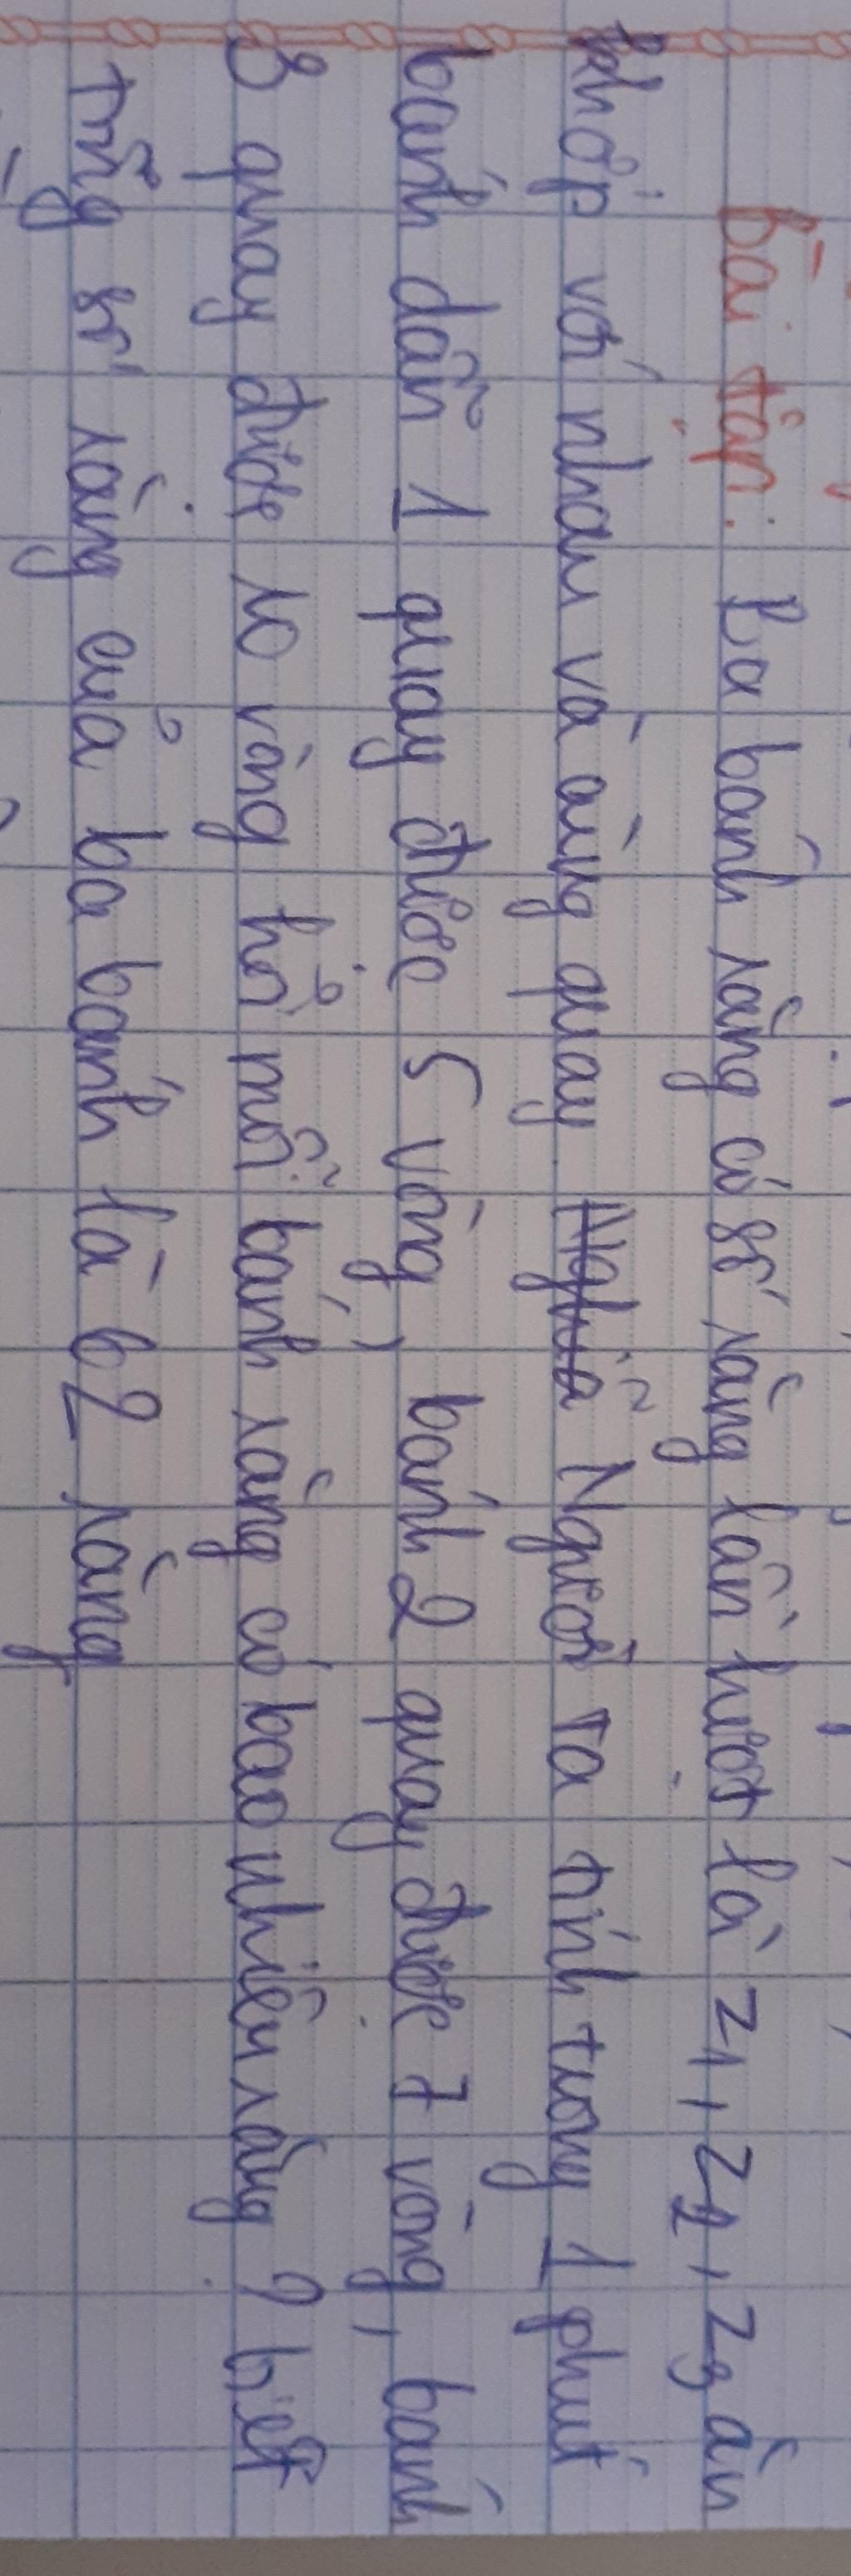 Bài tập: Ba bánh răng có số răng lần lượt là Z1, Z2, Z3 ăn
khớp với nhau và cùng quay. Nghĩa Người ta tính trong 1 phút
bánh dẫn 1 quay được 5 vòng, bánh 2 quay được 7 vòng, bánh
3 quay được 10 vòng hỏi mỗi bánh răng có bao nhiêu răng? biết
tổng số răng của ba bánh là 62 răng